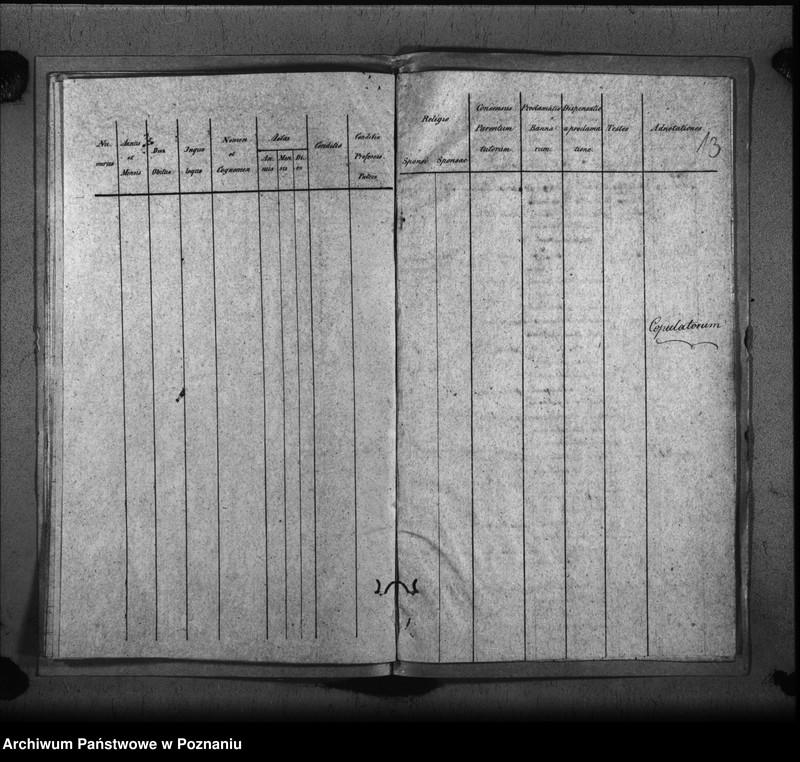 Nu-
merus
Annus
et
Mensis
Dies
Obitus
Inquo
loquo
Nomen
et
Cognomen
Aetas
An-
nus
Men-
sis
Di-
es
Conditio
Conditio
Professio
Religio
Sponsi Sponsae
Consensus
Parentum
tutorum
Proclamatio
Banno-
rum
Dispensatio
a proclama
tione
Testes
Adnotationes
13
Copulatorum
Archiwum Państwowe w Poznaniu